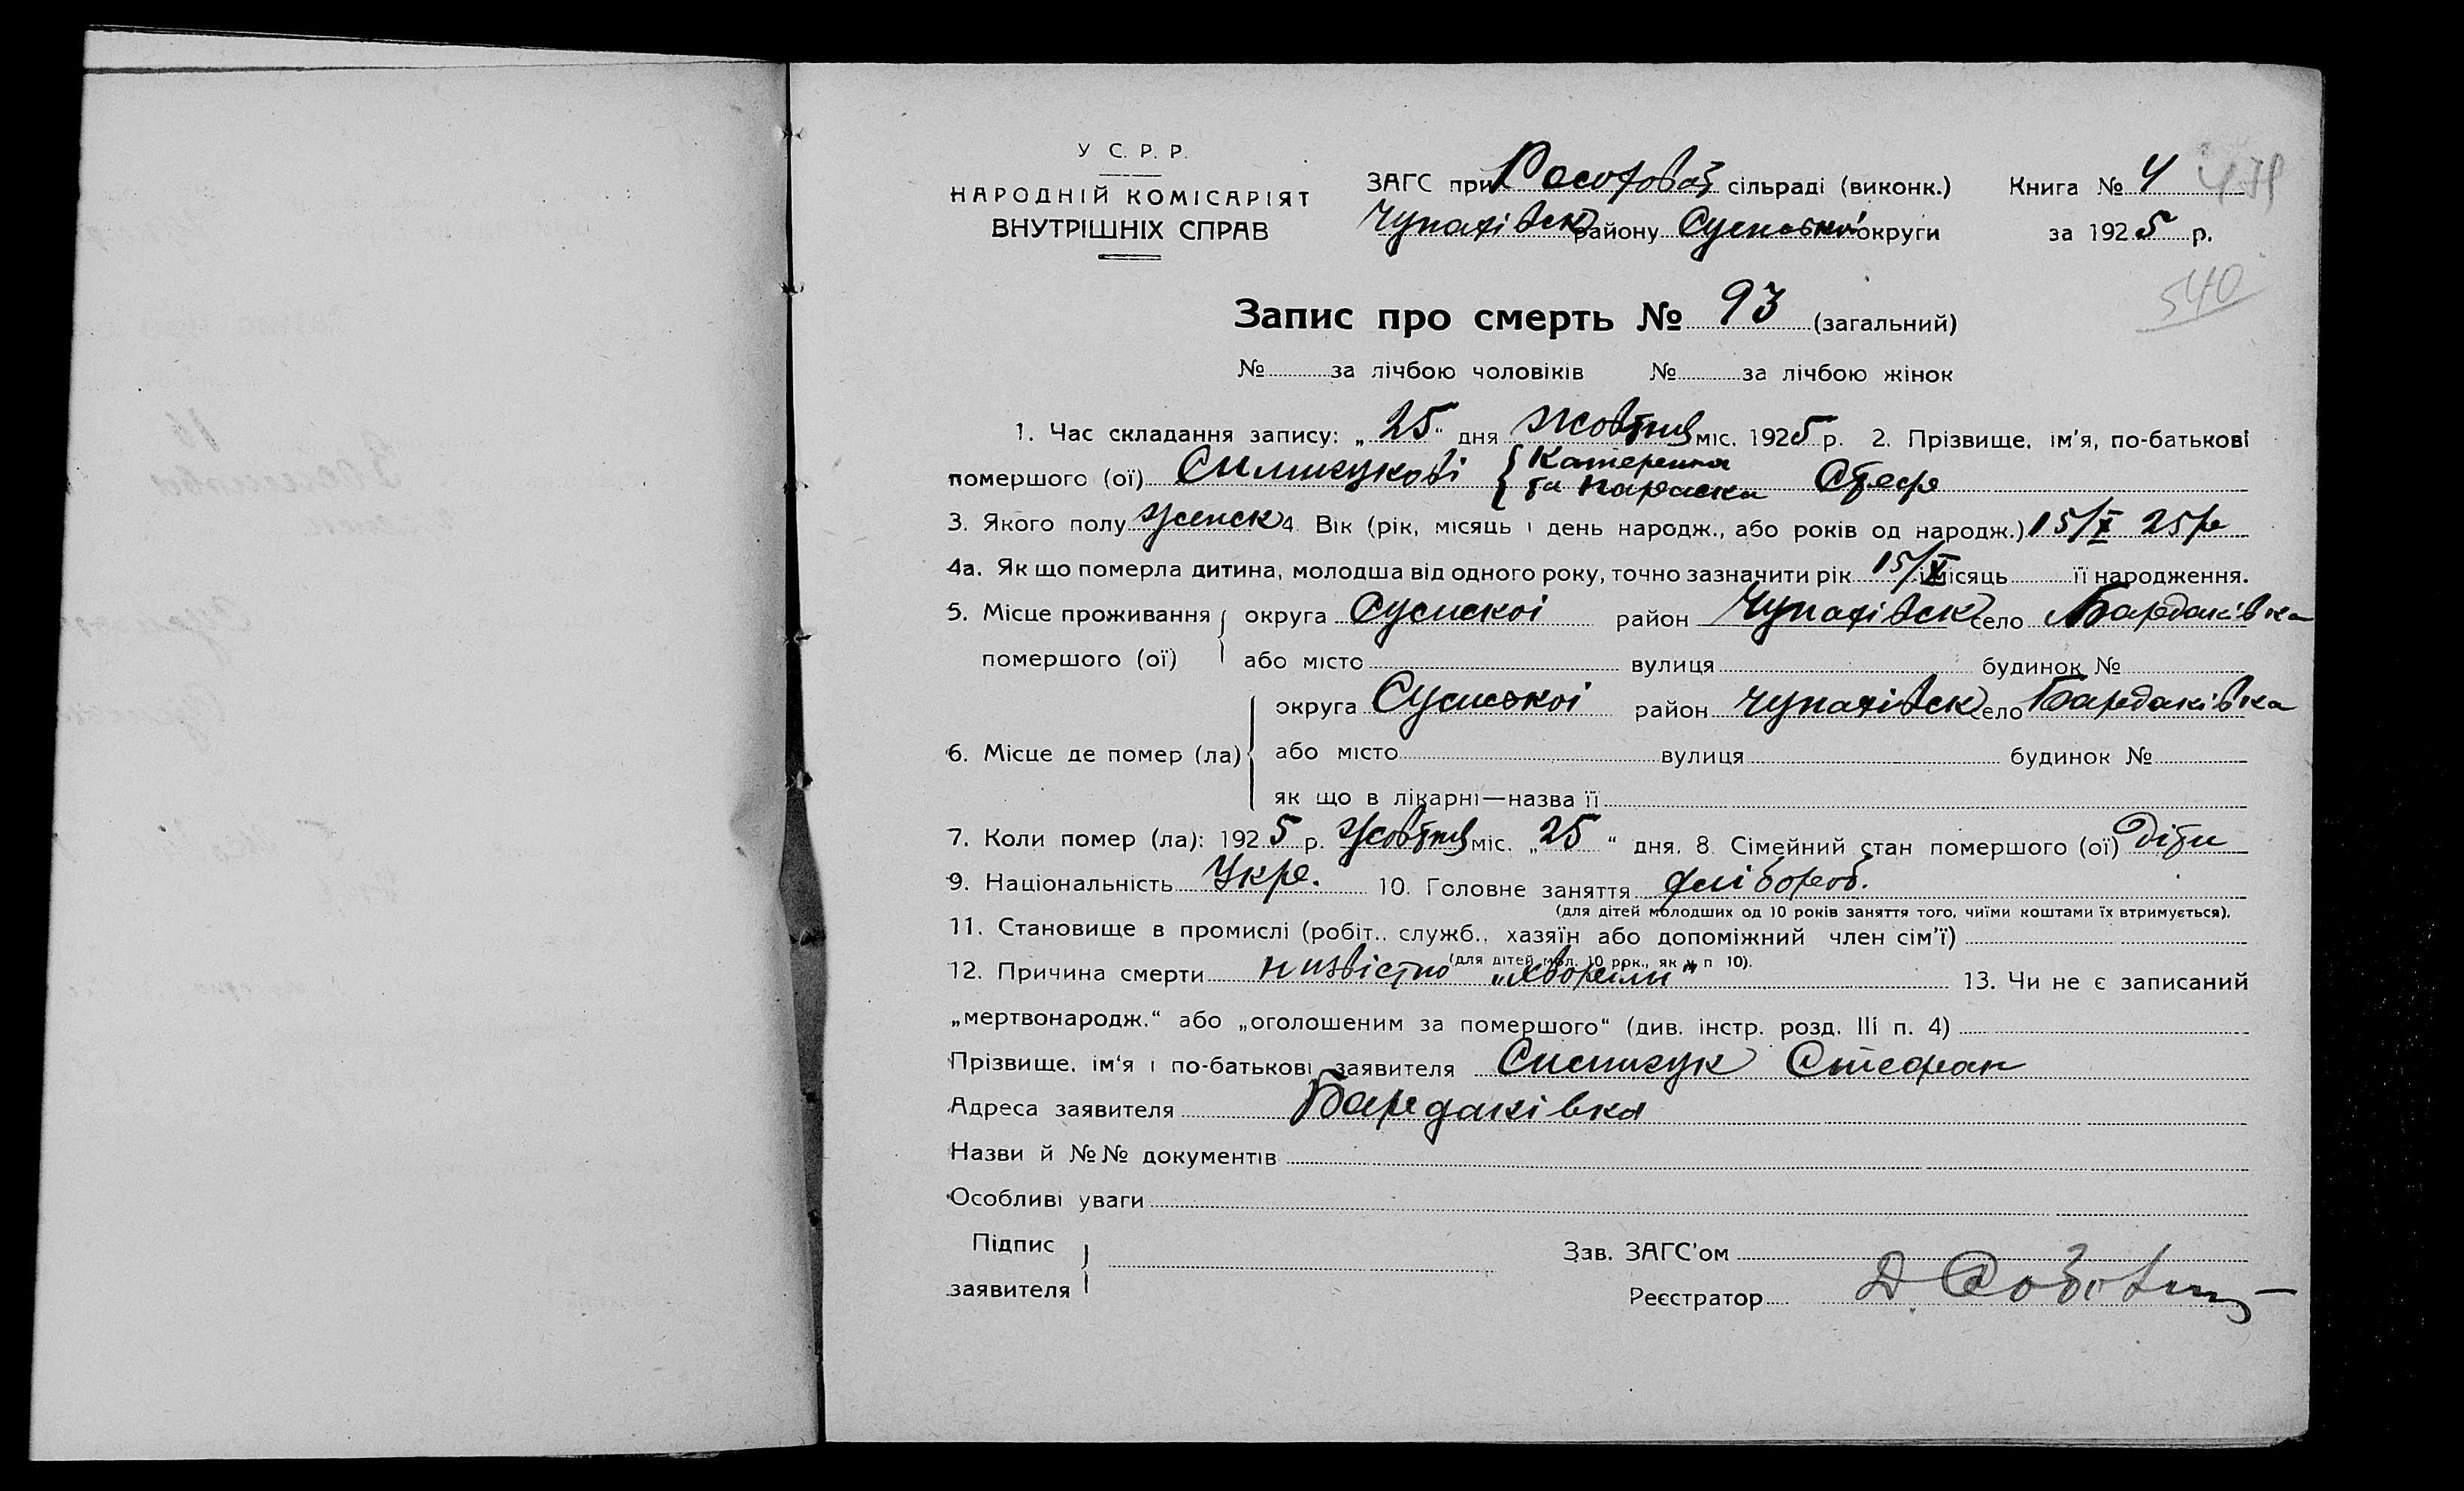 У С. Р. Р.
НАРОДНІЙ КОМІСАРІЯТ
ВНУТРІШНІХ СПРАВ
ЗАГС при Расохової сільраді (виконк.) Книга № 4
Чупахівськ району Сумської округи за 1925 р.
540
Запис про смерть № 93 (загальний)
№ за лічбою чоловіків № за лічбою жінок
1. Час складання запису: „25“ дня Жовтня міс. 1925 р. 2. Прізвище, ім'я, по-батькові
помершого (ої) { Катерина та Параска Стеф
3. Якого полу женск 4. Вік (рік, місяць і день народж., або років од народж.) 15/X 25 р
4а. Як що померла дитина, молодша від одного року, точно зазначити рік 15/X і місяць її народження.
5. Місце проживання { округа Сумскої район Чупахівск село Бардаківка
помершого (ої) або місто вулиця будинок №
округа Сумської район Чупахівск село Бардаківка
6. Місце де помер (ла) { або місто вулиця будинок №
як що в лікарні—назва її
7. Коли помер (ла): 1925 р. Жовтня міс. „25“ дня. 8. Сімейний стан помершого (ої) діти
9. Національність Укр. 10. Головне заняття хлібороб.
(для дітей молодших од 10 років заняття того, чиїми коштами їх втримується).
11. Становище в промислі (робіт., служб., хазяїн або допоміжний член сім'ї)
(для дітей мол. 10 рок., як у п 10).
12. Причина смерти низвістно „хворіли" 13. Чи не є записаний
„мертвонародж.“ або „оголошеним за помершого“ (див. інстр. розд. III п. 4)
Прізвище, ім'я і по-батькові заявителя Стефан
Адреса заявителя Бардаківка
Назви й №№ документів
Особливі уваги
Підпис
заявителя }
Зав. ЗАГС'ом
Реєстратор